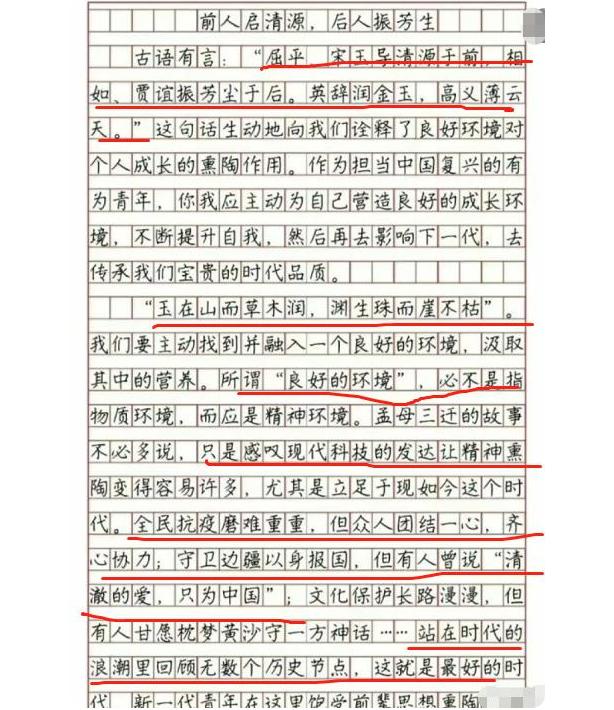 前人启清源，后人振芳生
古语有言：“屈平、宋玉导清源于前，相
如、贾谊振芳尘于后。英辞润金玉，高义薄云
天。”这句话生动地向我们诠释了良好环境对
个人成长的熏陶作用。作为担当中国复兴的有
为青年，你我应主动为自己营造良好的成长环
境，不断提升自我，然后再去影响下一代，去
传承我们宝贵的时代品质。
“玉在山而草木润，渊生珠而崖不枯”。
我们要主动找到并融入一个良好的环境，汲取
其中的营养。所谓“良好的环境”，必不是指
物质环境，而应是精神环境。孟母三迁的故事
不必多说，只是感叹现代科技的发达让精神熏
陶变得容易许多，尤其是立足于现如今这个时
代。全民抗疫磨难重重，但众人团结一心，齐
心协力；守卫边疆以身报国，但有人曾说“清
澈的爱，只为中国”；文化保护长路漫漫，但
有人甘愿枕梦黄沙守一方神话……站在时代的
浪潮里回顾无数个历史节点，这就是最好的时
代，新一代青年在这里饱受前辈思想熏陶